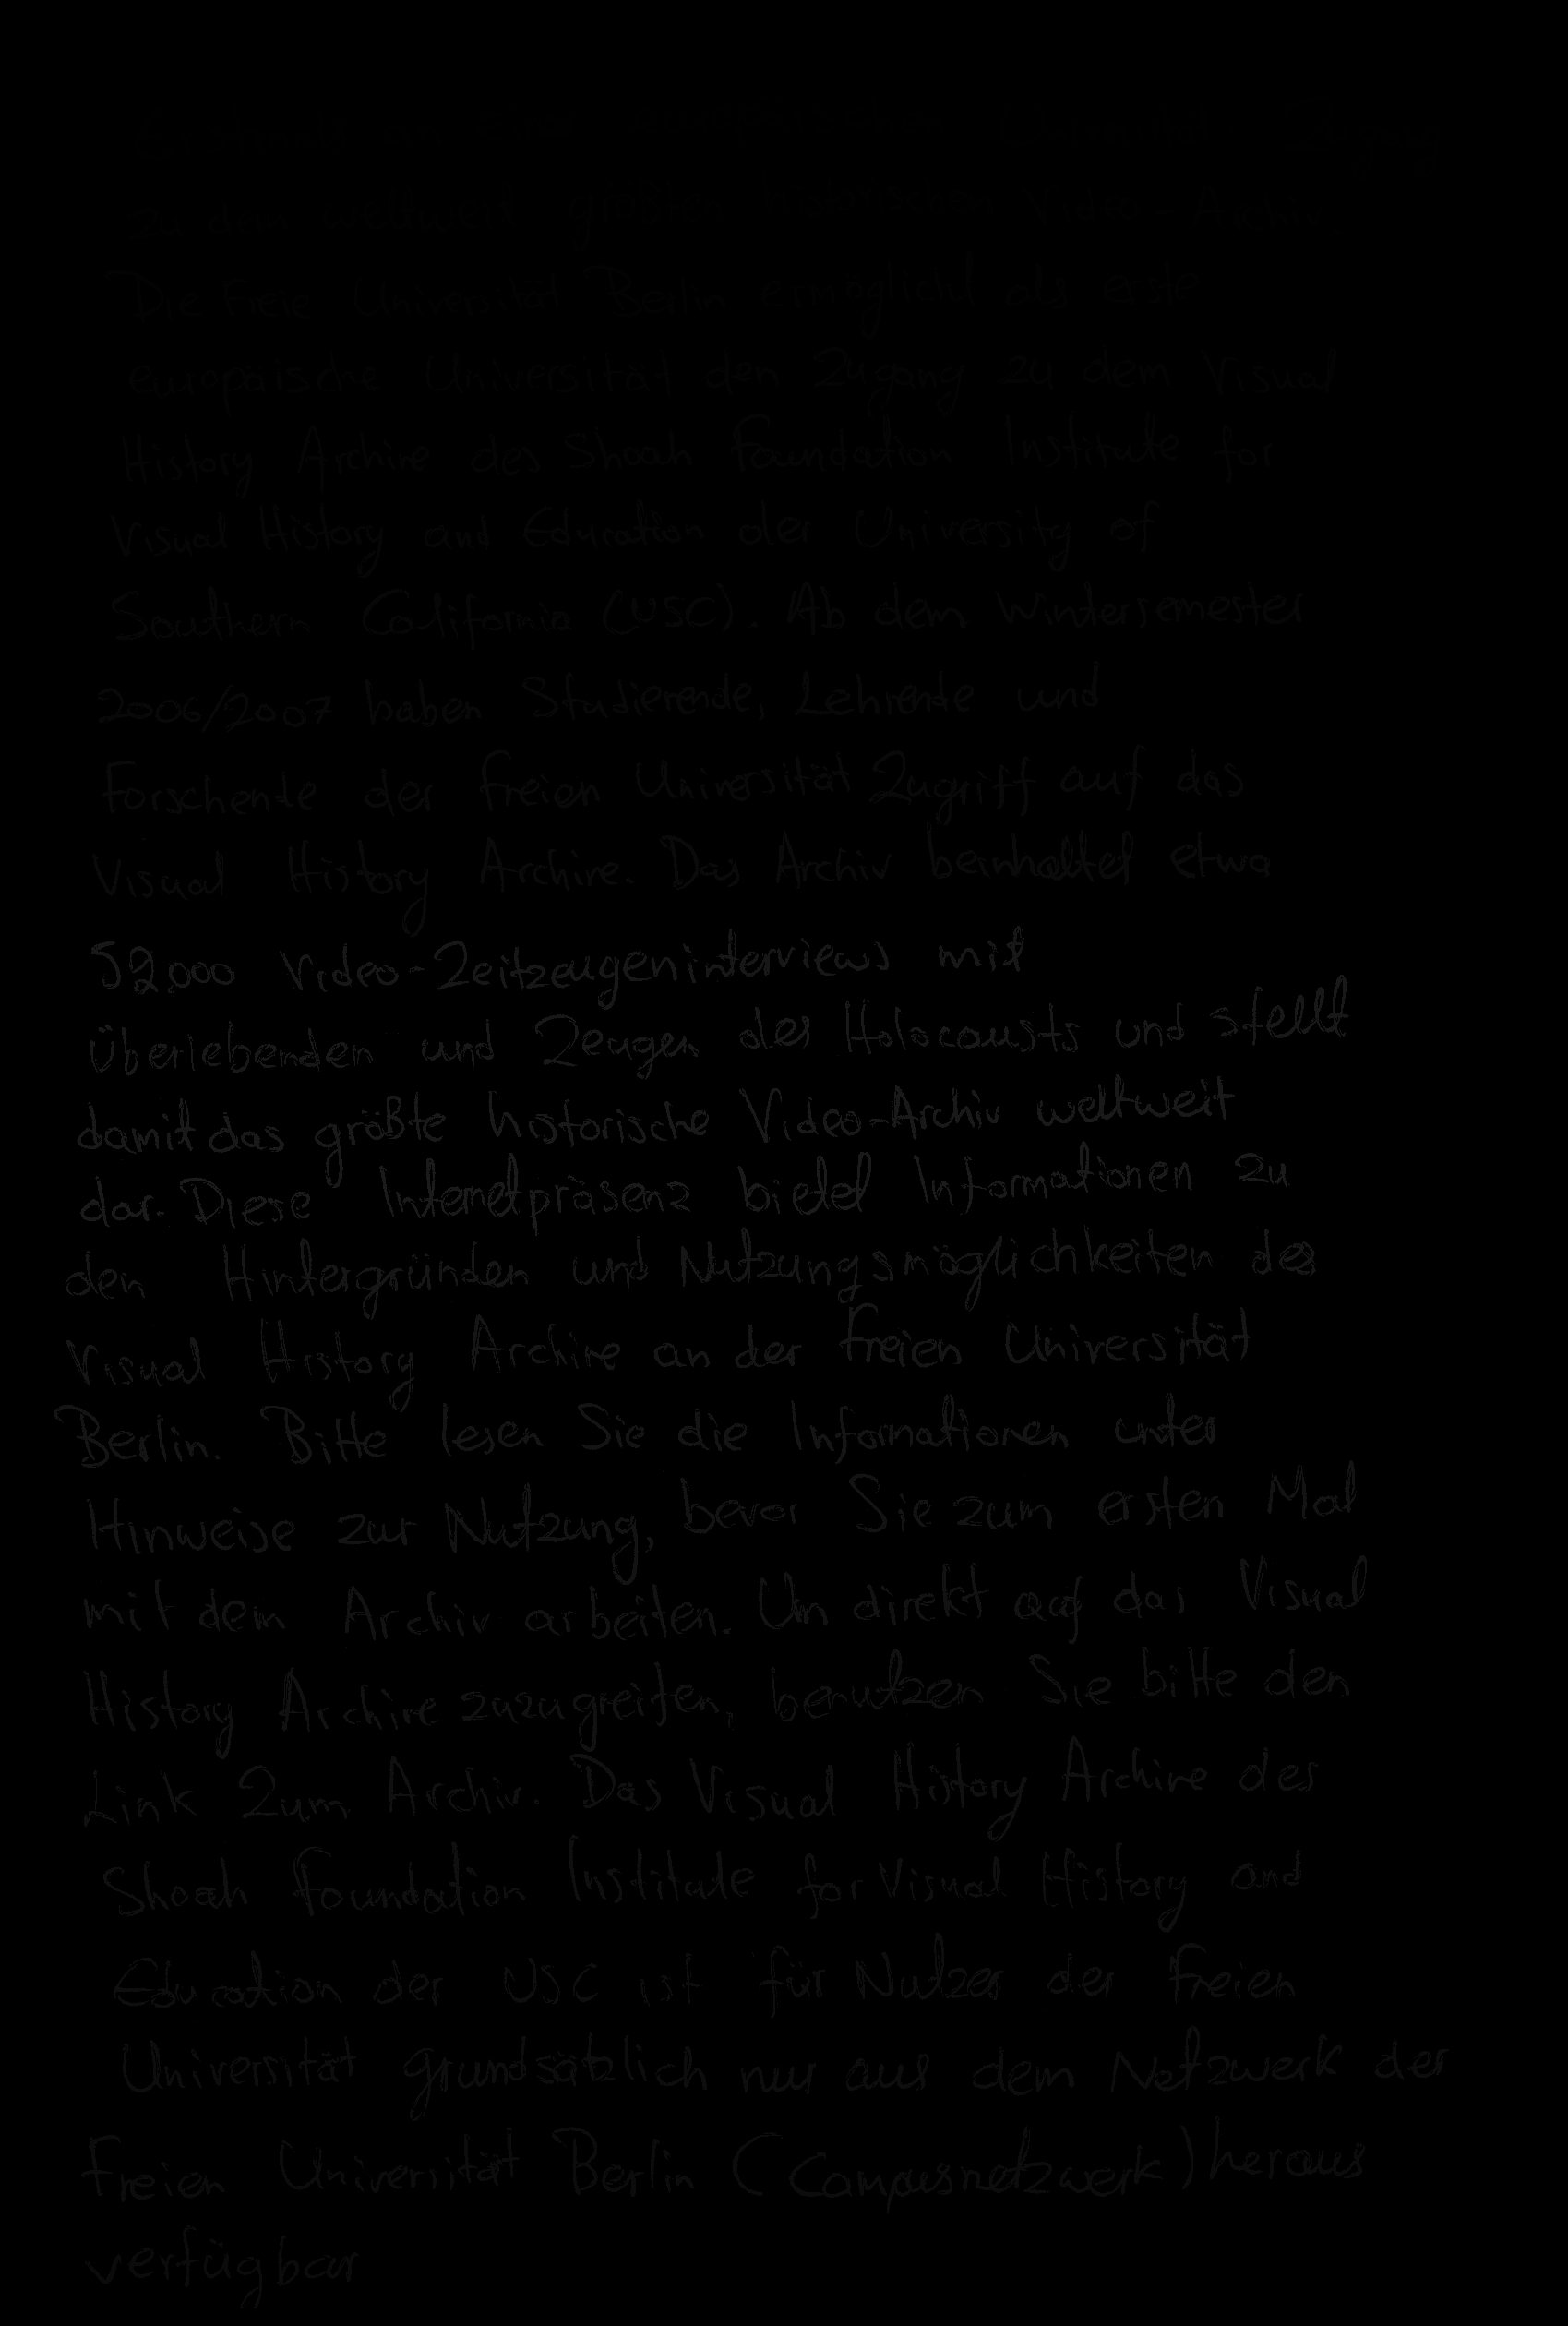 zu dem weltweit größten historischen Video-Archiv
Die Freie Universität Berlin ermöglicht als erste
europäische Universität den Zugang zu dem Visual
History Archive des Shoah Foundation Institute for
Visual History and Education der University of
Southern California (USC). Ab dem Wintersemester
2006/2007 haben Studierende, Lehrende und
Forschende der Freien Universität Zugriff auf das
Visual History Archive. Das Archiv beinhaltet etwa
52.000 Video-Zeitzeugeninterviews mit
Überlebenden und Zeugen des Holocausts und stellt
damit das größte historische Video-Archiv weltweit
dar. Diese Internetpräsenz bietet Informationen zu
den Hintergründen und Nutzungsmöglichkeiten des
Visual History Archive an der Freien Universität
Berlin. Bitte lesen Sie die Informationen unter
Hinweise zur Nutzung, bevor Sie zum ersten Mal
mit dem Archiv arbeiten. Um direkt auf das Visual
History Archive zuzugreifen, benutzen Sie bitte den
Link Zum Archiv. Das Visual History Archive des
Shoah Foundation Institute for Visual History and
Education der USC ist für Nutzer der Freien
Universität grundsätzlich nur aus dem Netzwerk der
Freien Universität Berlin (Campusnetzwerk) heraus
verfügbar